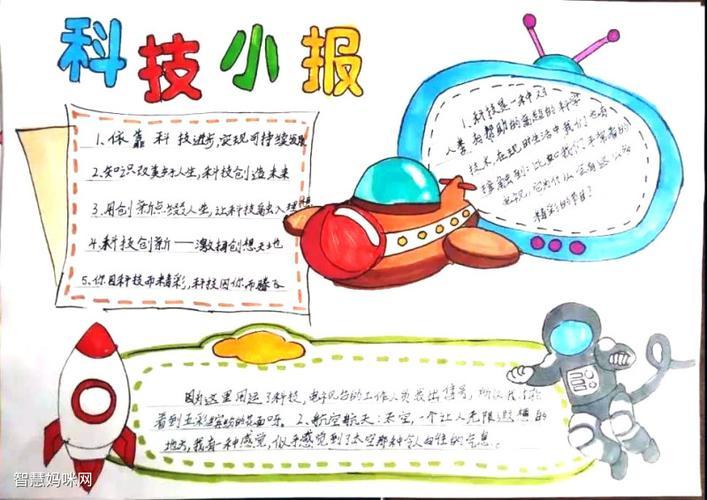 科技小报
1.依靠科技进步,实现可持续发展
2.知识改变人生,科技创造未来
3.用创新点缀人生,让科技融入理想
4.科技创新——激拥创想天地
5.你因科技而精彩,科技因你而腾飞
1.科技是一种对
人类有帮助的高超的科学
技术,在现时生活中我们也有
接触到:比如我们平常看的
电视,它为什么会有这么多
精彩的节目?
因为这里用运了科技,电视台的工作人员发出信号,所以我们
看到五彩缤纷的页面啦。2、航空航天:太空,一个让人无限遐想的
地方,我有一种感觉,似乎感觉到了太空那种令人向往的气息。
智慧妈咪网